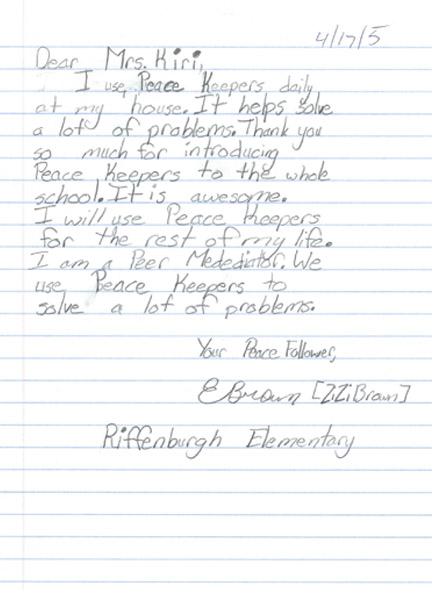 4/17/5
Dear Mrs. Kiri,
I use, Peace Keepers daily
at my house. It helps solve
a lot of problems. Thank you
so much for introducing
Peace Keepers to the whole
school. It is awesome.
I will use Peace Keepers
for the rest of my life.
I am a Peer Medediator. We
use Peace Keepers to
solve a lot of problems.
Your Peace Follower,
E Brown [ZiZi Brown]
Riffenburgh Elementary